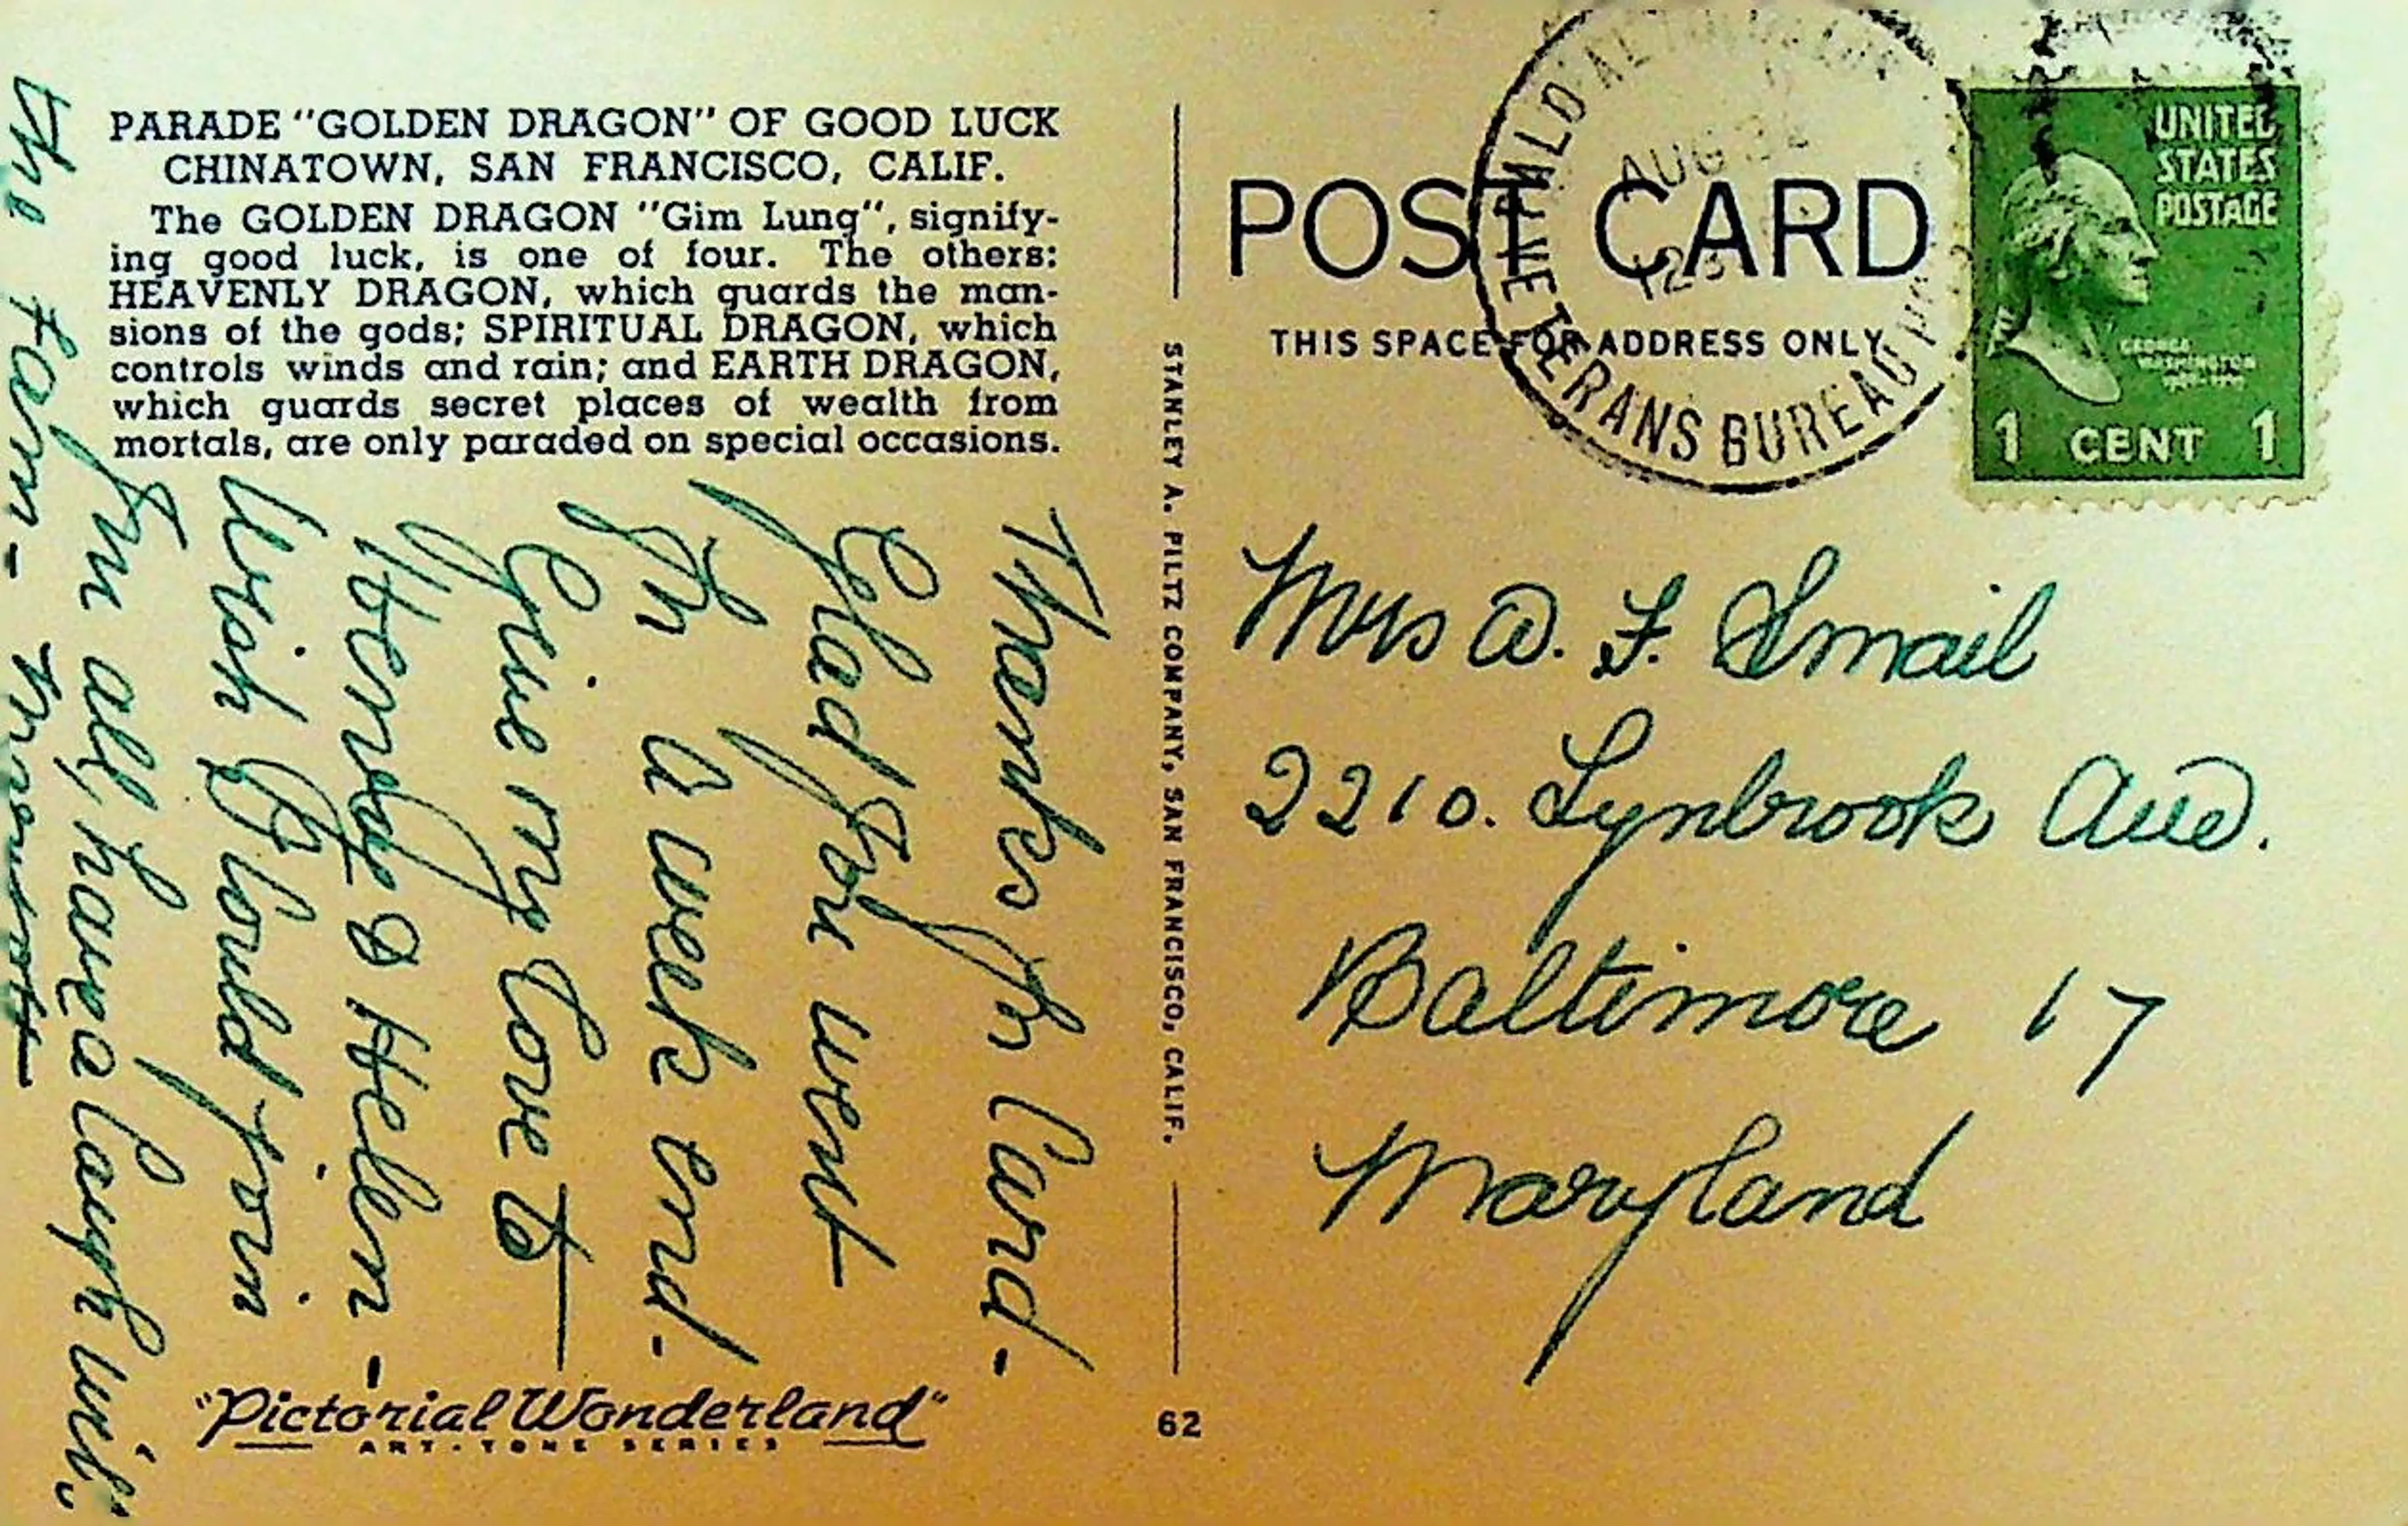 PARADE "GOLDEN DRAGON" OF GOOD LUCK
CHINATOWN, SAN FRANCISCO, CALIF.
The GOLDEN DRAGON "Gim Lung", signify-
ing good luck, is one of four. The others:
HEAVENLY DRAGON, which guards the man-
sions of the gods; SPIRITUAL DRAGON, which
controls winds and rain; and EARTH DRAGON,
which guards secret places of wealth from
mortals, are only paraded on special occasions.
Thanks for Card-
Glad you went
for a week end-
Give my love to
& Helen-
Wish I could join
you all, have a laugh with
the
"Pictorial Wonderland"
ART-TONE SERIES
STANLEY A. PILTZ COMPANY, SAN FRANCISCO, CALIF.
62
POST CARD
THIS SPACE FOR ADDRESS ONLY
AUG
VETERANS BUREAU
UNITED
STATES
POSTAGE
GEORGE
WASHINGTON
1 CENT 1
Mrs D. F. Smail
2210. Lynbrook Ave.
Baltimore 17
Maryland